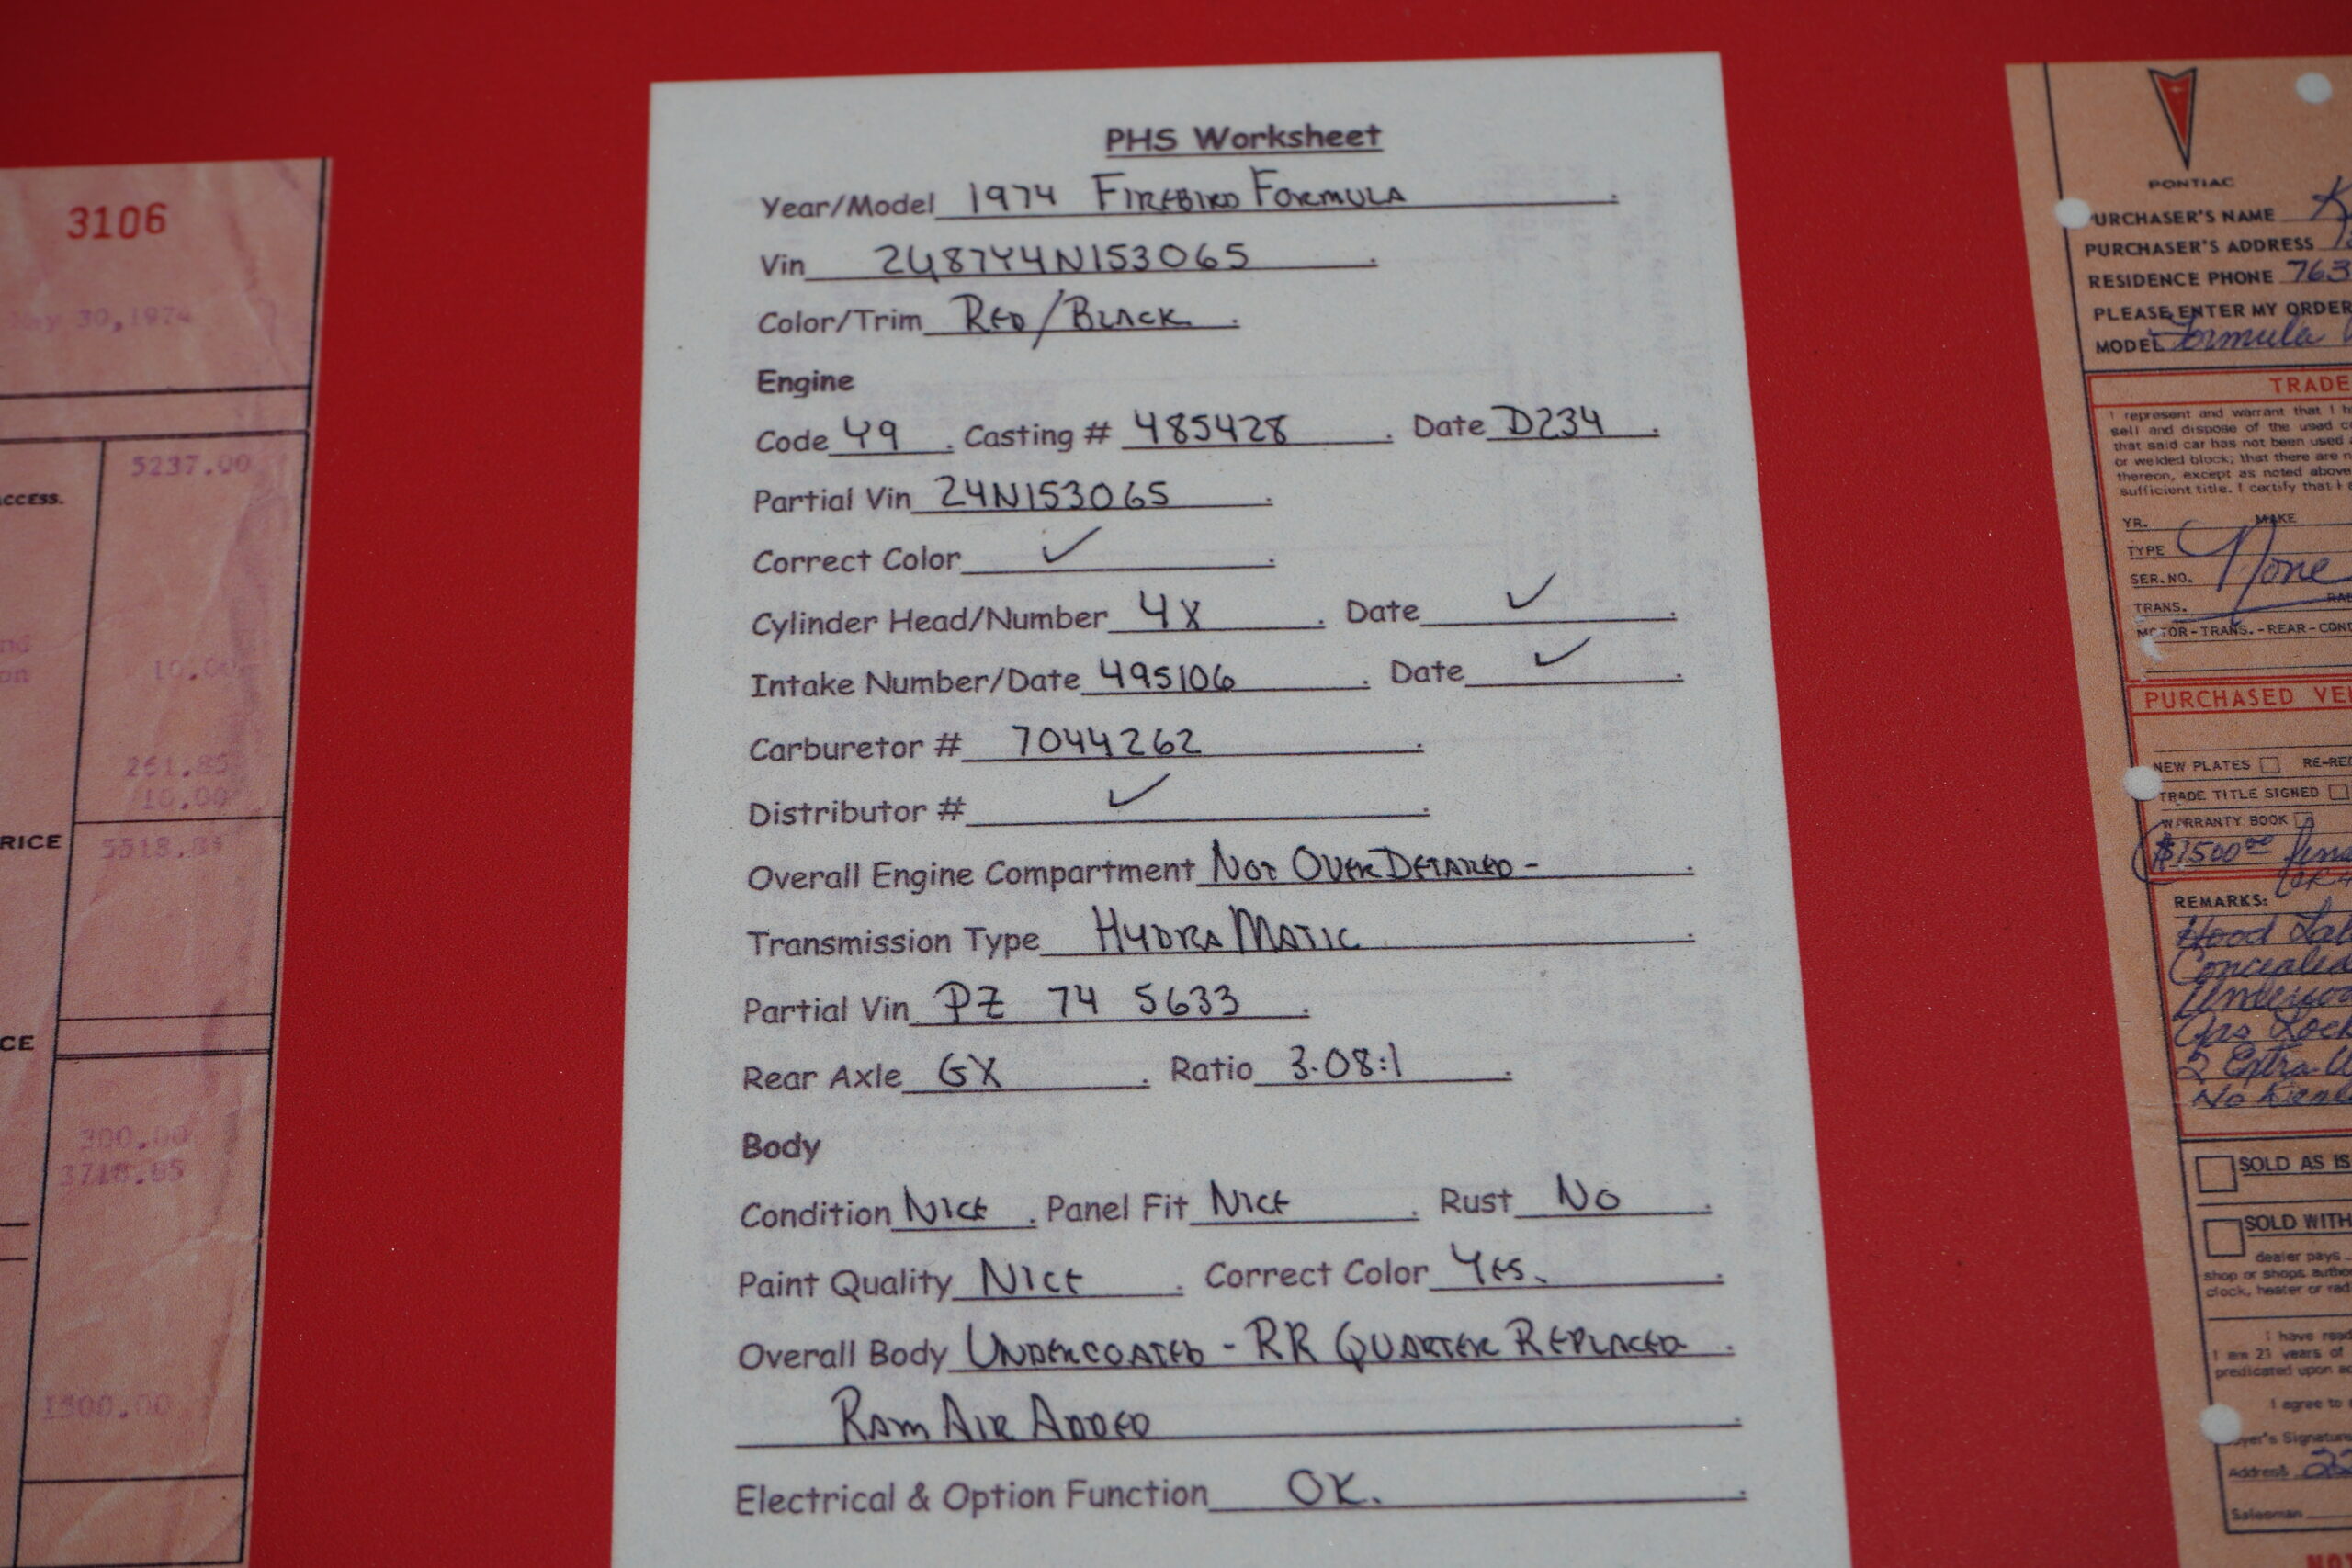 3106
30,1974
5237.00
ACCESS.
10.00
261.85
10.00
RICE
CE
300.00
3718.85
1500.00
PHS Worksheet
Year/Model 1974 Firebird Formula
Vin 2U87Y4N153065
Color/Trim Red/Black
Engine
Code Y9 Casting # 485428 Date D234
Partial Vin 24N153065
Correct Color ✓
Cylinder Head/Number 4X Date ✓
Intake Number/Date 495106 Date ✓
Carburetor # 7044262
Distributor # ✓
Overall Engine Compartment Not Over Detailed -
Transmission Type HydraMatic
Partial Vin PZ 74 5633
Rear Axle GX Ratio 3.08:1
Body
Condition Nice Panel Fit Nice Rust No
Paint Quality Nice Correct Color Yes.
Overall Body Undercoated - RR Quarter Replaced
Ram Air Added
Electrical & Option Function OK.
PONTIAC
PURCHASER'S NAME
PURCHASER'S ADDRESS
RESIDENCE PHONE 763
PLEASE ENTER MY ORDER
MODEL Formula
TRADE
I represent and warrant that I
sell and dispose of the used
that said car has not been used
or welded block; that there are
thereon, except as noted above
sufficient title. I certify that I
YR. MAKE
TYPE None
SER. NO.
TRANS.
MOTOR-TRANS.-REAR-COND
PURCHASED VE
NEW PLATES RE-RE
TRADE TITLE SIGNED
WARRANTY BOOK
$1500.00
REMARKS:
Hood
Concealed
2 Extra
No
SOLD AS IS
SOLD WITH
dealer pays
shop or shops
clock, heater or rad
I have read
I am 21 years of
predicated upon
I agree to
Buyer's Signature
Address
Salesman